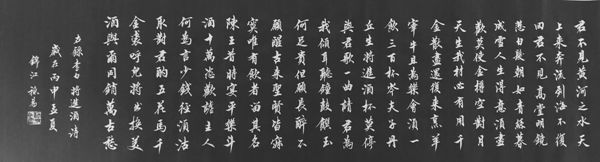 君不見黃河之水天
上來奔流到海不復
回君不見高堂明鏡
悲白髮朝如青絲暮
成雪人生得意須盡
歡莫使金樽空對月
天生我材必有用千
金散盡還復來烹羊
宰牛且為樂會須一
飲三百杯岑夫子丹
丘生將進酒杯莫停
與君歌一曲請君為
我傾耳聽鐘鼓饌玉
何足貴但願長醉不
願醒古來聖賢皆寂
寞唯有飲者留其名
陳王昔時宴平樂斗
酒十千恣歡謔主人
何為言少錢徑須沽
取對君酌五花馬千
金裘呼兒將出換美
酒與爾同銷萬古愁
右錄李白將進酒詩
歲在丙申孟夏
錦江